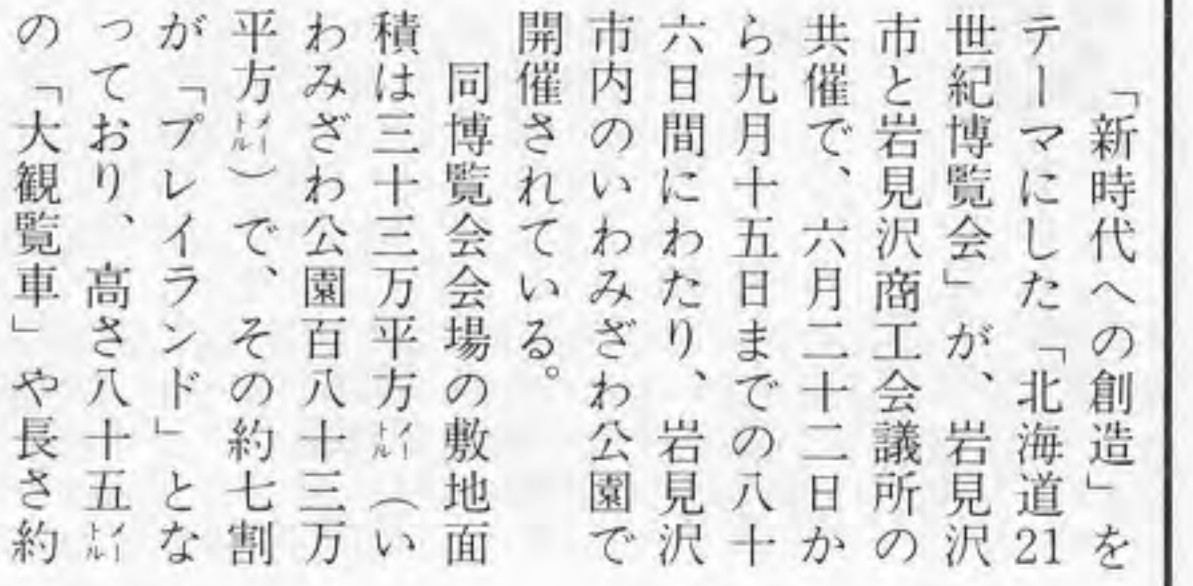 「新時代への創造」を
テーマにした「北海道21
世紀博覧会」が、岩見沢
市と岩見沢商工会議所の
共催で、六月二十二日か
ら九月十五日までの八十
六日間にわたり、岩見沢
市内のいわみざわ公園で
開催されている。
同博覧会会場の敷地面
積は三十三万平方メートル(い
わみざわ公園百八十三万
平方メートル)で、その約七割
が「プレイランド」とな
っており、高さ八十五メートル
の「大観覧車」や長さ約